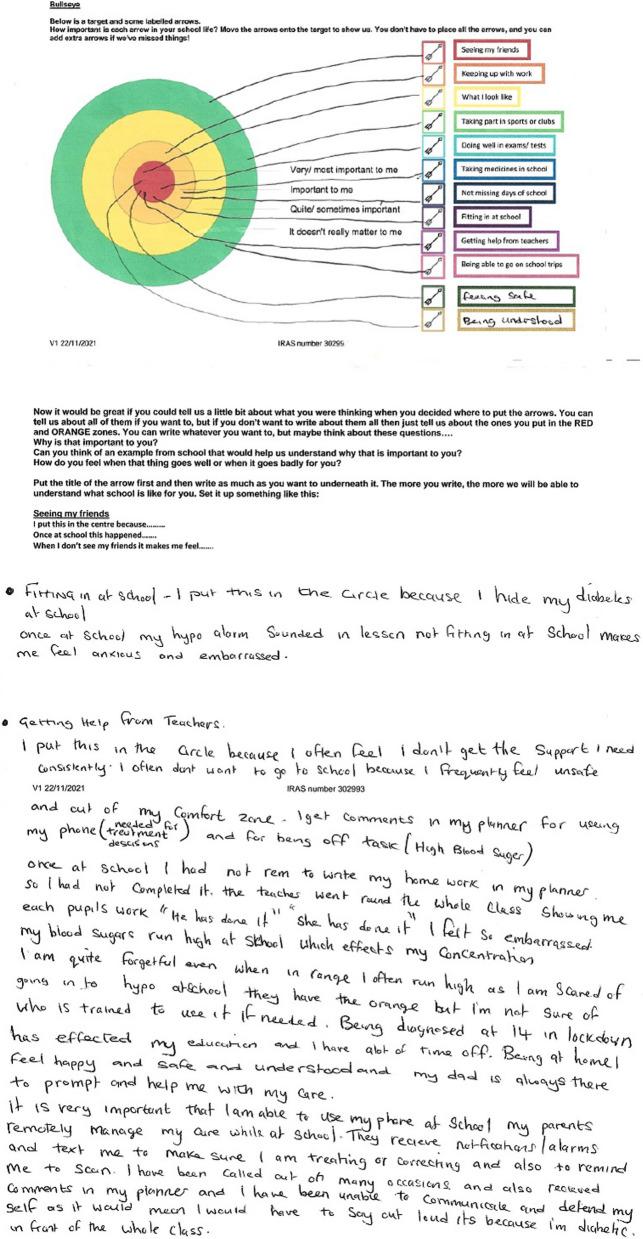 Bullseye
Below is a target and some labelled arrows.
How important is each arrow in your school life? Move the arrows onto the target to show us. You don't have to place all the arrows, and you can
add extra arrows if we've missed things!
Seeing my friends
Keeping up with work
What I look like
Taking part in sports or clubs
Doing well in exams/ tests
Very/ most important to me
Taking medicines in school
Important to me
Not missing days of school
Quite/ sometimes important
Fitting in at school
It doesn't really matter to me
Getting help from teachers
Being able to go on school trips
Feeling Safe
Being understood
V1 22/11/2021
IRAS number 30299
Now it would be great if you could tell us a little bit about what you were thinking when you decided where to put the arrows. You can
tell us about all of them if you want to, but if you don't want to write about them all then just tell us about the ones you put in the RED
and ORANGE zones. You can write whatever you want to, but maybe think about these questions….
Why is that important to you?
Can you think of an example from school that would help us understand why that is important to you?
How do you feel when that thing goes well or when it goes badly for you?
Put the title of the arrow first and then write as much as you want to underneath it. The more you write, the more we will be able to
understand what school is like for you. Set it up something like this:
Seeing my friends
I put this in the centre because………
Once at school this happened…….
When I don't see my friends it makes me feel…….
• Fitting in at school - I put this in the circle because I hide my diabetes
at school
once at school my hypo alarm Sounded in lesson not fitting in at School makes
me feel anxious and embarrassed.
• Getting Help from Teachers.
I put this in the circle because I often feel I don't get the Support I need
consistently. I often dont want to go to school because I frequently feel unsafe
V1 22/11/2021
IRAS number 302993
and out of my comfort zone. I get comments in my planner for using
my phone (needed for treatment descisions) and for being off task (High Blood Suger)
once at school I had not rem to write my home work in my planner
so I had not completed it. the teacher went round the whole class showing me
each pupils work "He has done it" "she has done it" I felt so embarrassed
my blood sugars run high at school which effects my concentration
I am quite forgetful even when in range I often run high as I am scared of
going in to hypo atschool they have the orange but i'm not sure of
who is trained to use it if needed. Being diagnosed at 14 in lockdown
has effected my education and I have alot of time off. Being at home I
feel happy and safe and understood and my dad is always there
to prompt and help me with my care.
it is very important that I am able to use my phone at School my parents
remotely manage my care while at school. They recieve notifications/alarms
and text me to make sure I am treating or correcting and also to remind
me to scan. I have been called out on many occasions and also recieved
comments in my planner and I have been unable to communicate and defend my
self as it would mean I would have to say out loud its because i'm diabetic.
in front of the whole class.